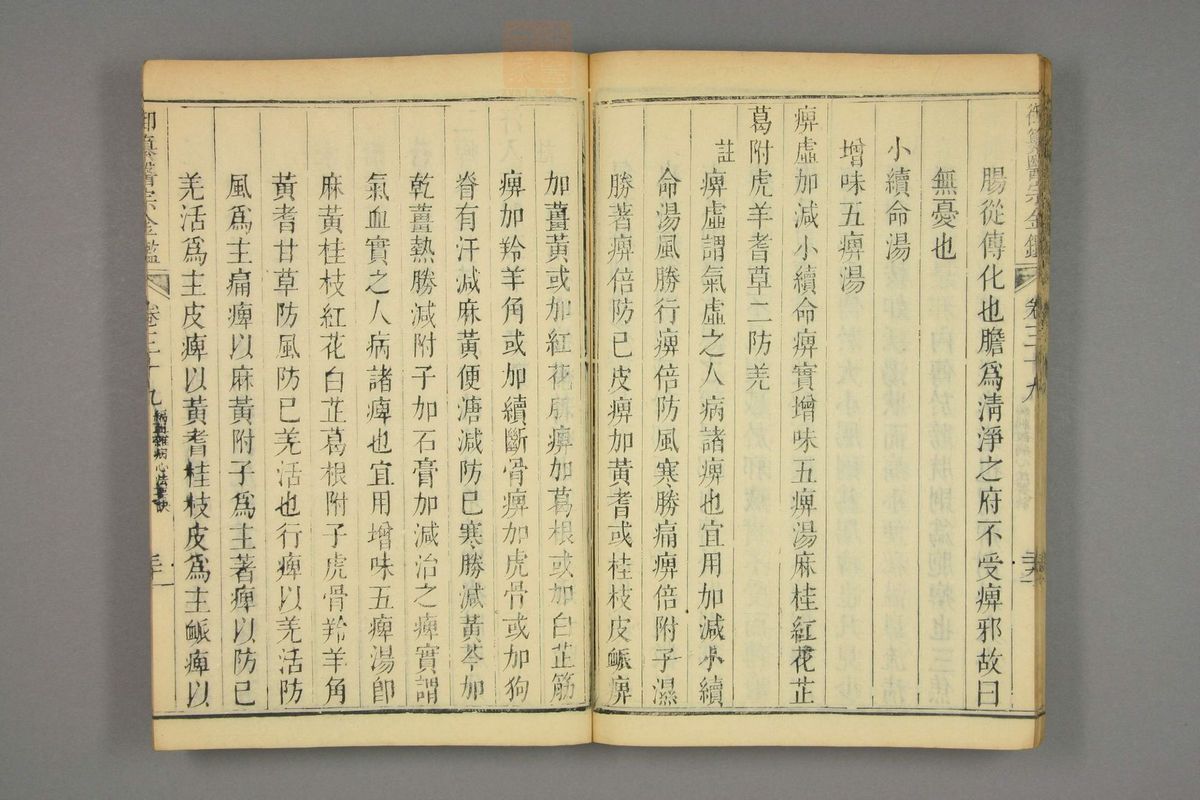 御纂醫宗金鑑 卷三十九
腸從傳化也膽為淸淨之府不受痹邪故曰
無憂也
小續命湯
增味五痹湯
痹虛加減小續命痹實增味五痹湯麻桂紅花芷
葛附虎羊耆草二防羌
註
痹虛謂氣虛之人病諸痹也宜用加減小續
命湯風勝行痹倍防風寒勝痛痹倍附子濕
勝著痹倍防已皮痹加黃耆或桂枝皮脈痹
加薑黃或加紅花肌痹加葛根或加白芷筋
痹加羚羊角或加續斷骨痹加虎骨或加狗
脊有汗減麻黃便溏減防已寒勝減黃芩加
乾薑熱勝減附子加石膏加減治之痹實謂
氣血實之人病諸痹也宜用增味五痹湯卽
麻黃桂枝紅花白芷葛根附子虎骨羚羊角
黃耆甘草防風防已羌活也行痹以羌活防
風爲主痛痹以麻黃附子爲主著痹以防已
羌活爲主皮痹以黃耆桂枝皮爲主脈痹以
御纂醫宗金鑑 卷三十九